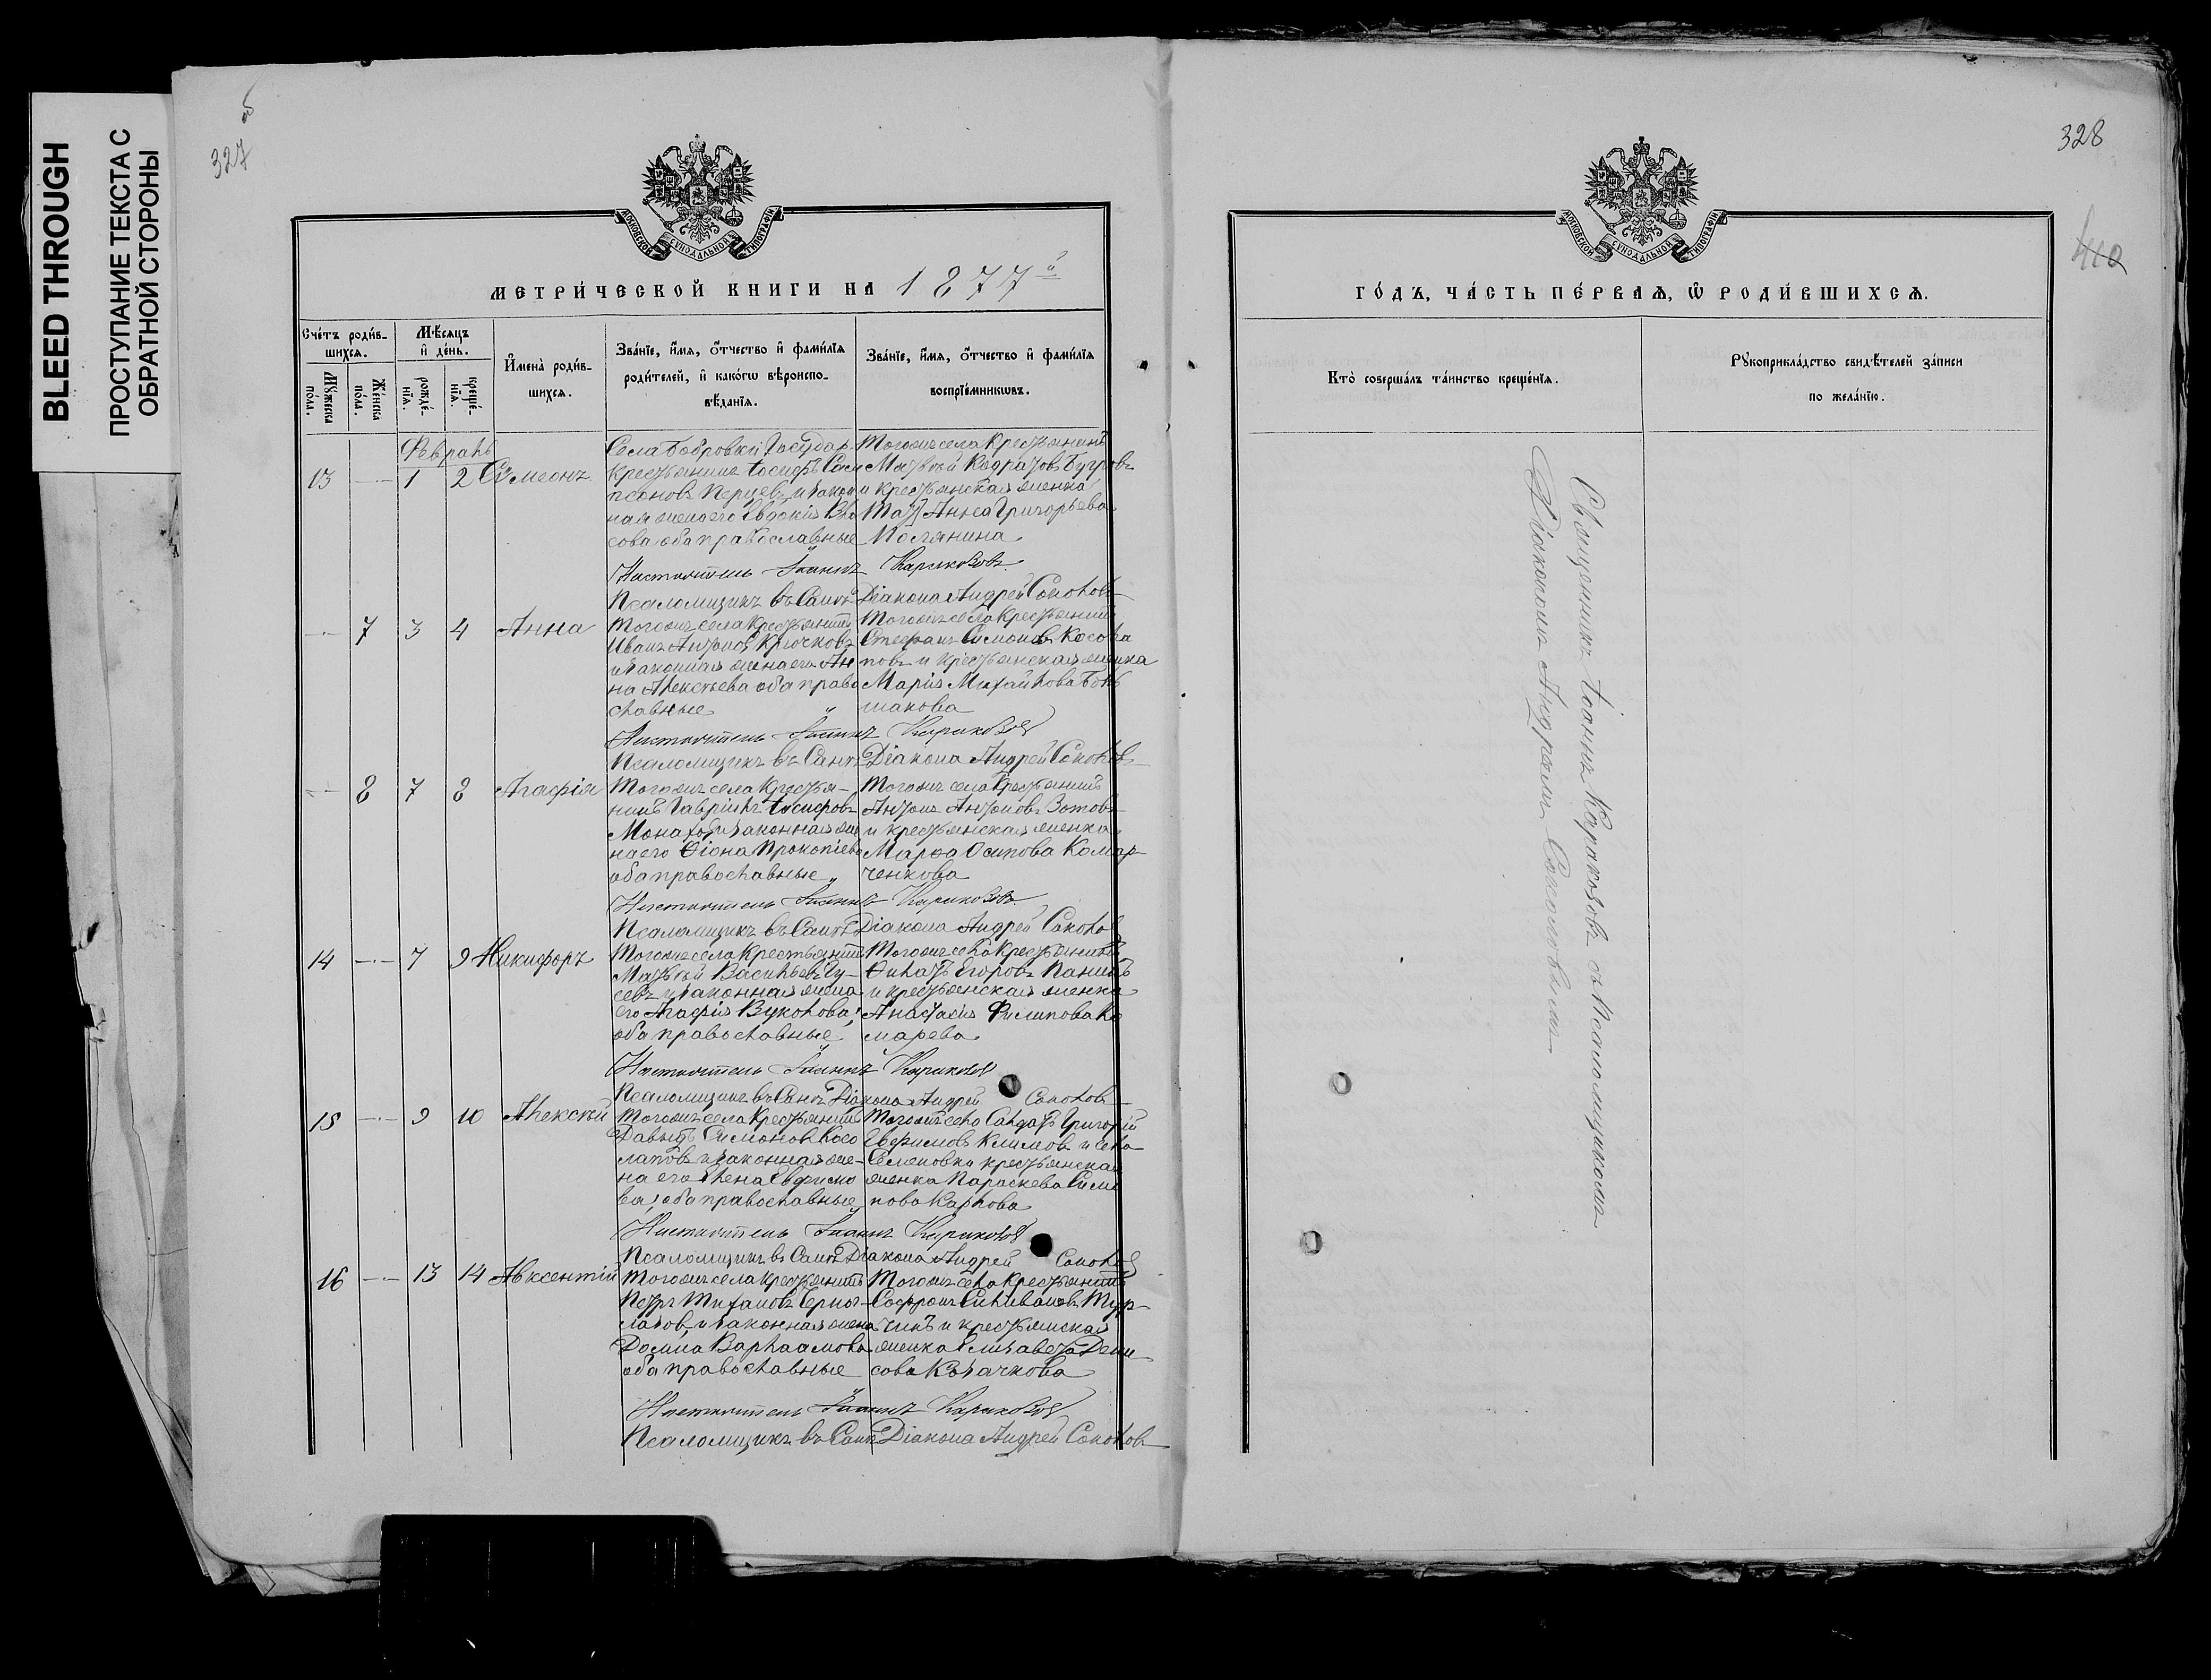 BLEED THROUGH
ПРОСТУПАНИЕ ТЕКСТА С
ОБРАТНОЙ СТОРОНЫ
327
об
МОСКОВСКОЙ СУНОДАЛЬНОЙ ТИПОГРАФІИ
МЕТРИ́ЧЕСКОЙ КНИГИ НА 1877й
Сче́тъ роди́в-
шихсѧ.
Мꙋ́жеска
по́ла.
Же́нска
по́ла.
Мѣ́сѧцъ
и҆ де́нь.
рожде́-
нїѧ.
креще́-
нїѧ.
И҆мена̀ роди́в-
шихсѧ.
Зва́нїе, и҆́мѧ, ѻ҆́тчество и҆ фами́лїѧ
роди́телей, и҆ како́гѡ вѣроиспо-
вѣ́данїѧ.
Зва́нїе, и҆́мѧ, ѻ҆́тчество и҆ фами́лїѧ
воспрїе́мникѡвъ.
Февраль
13 — 1 2 Симеонъ
Села Бобровки Государ.
крестьянинъ Іосифъ Сам
псоновъ Перцевъ и закон
ная жена его Евдокія Вла
сова оба православные
Тогоже села Крестьянинъ
Матвѣй Кодратовъ Бугровъ
и крестьянская женка
Анна Григорьева
Настоятель Іоаннъ Каракозовъ
Псаломщикъ въ Санѣ Діакона Андрей Соколовъ
— 7 3 4 Анна
Тогоже села крестьянинъ
Иванъ Антоновъ Крючковъ
и законная жена его Ан
на Алексѣева оба право
славные
Тогоже села Крестьянинъ
Стефанъ Симоновъ Косола
повъ и крестьянская женка
Марія Михайлова Боль
шакова
Настоятель Іоаннъ Каракозовъ
Псаломщикъ въ Санѣ Діакона Андрей Соколовъ
— 8 7 8 Агафія
Тогоже села крестья-
нинъ Гаврілъ Іосифовъ
законная же
на его Ѳіона Прокопіева
оба православные
Тогоже села Крестьянинъ
Антонъ Антоновъ Зотовъ
и крестьянская женка
Марѳа Осипова Комар-
ченкова
Настоятель Іоаннъ Каракозовъ
Псаломщикъ въ Санѣ Діакона Андрей Соколовъ
14 — 7 9 Никифоръ
Тогоже села Крестьянинъ
Матвѣй Васильевъ Гу-
севъ и законная жена
его Агафія Вуколова;
оба православные
Тогоже села Крестьянинъ
Филатъ Егоровъ Панинъ
и крестьянская женка
Анастасія Филипова Ко
марева
Настоятель Іоаннъ Каракозовъ
Псаломщикъ въ Санѣ Діакона Андрей Соколовъ
15 — 9 10 Алексѣй
Тогоже села Крестьянинъ
Давыдъ Симоновъ Косо
лаповъ и законная же-
на его Елена Евфимо
ва; оба православные
Тогоже села Солдатъ Григорій
Евфимовъ Климовъ и села
Семеновки крестьянская
женка Параскева Симо
нова Карпова
Настоятель Іоаннъ Каракозовъ
Псаломщикъ въ Санѣ Діакона Андрей Соколовъ
16 — 13 14 Авксентій
Тогоже села крестьянинъ
Петръ Тихановъ
и законная жена
Домна Варлаамова
оба православные
Тогоже села Крестьянинъ
Софронъ Силивановъ
и крестьянская
женка Елизавета Дени
сова Казачкова
Настоятель Іоаннъ Каракозовъ
Псаломщикъ въ Санѣ Діакона Андрей Соколовъ
328
410
МОСКОВСКОЙ СУНОДАЛЬНОЙ ТИПОГРАФІИ
ГО́ДЪ, ЧА́СТЬ ПЕ́РВАѦ, Ѡ҆ РОДИ́ВШИХСѦ.
Кто̀ соверша́лъ та́инство креще́нїѧ.
Рꙋкоприкла́дство свидѣ́телей за́писи
по жела́нїю.
Священникъ Іоаннъ Каракозовъ съ Псаломщикомъ
Діакономъ Андреемъ Соколовымъ